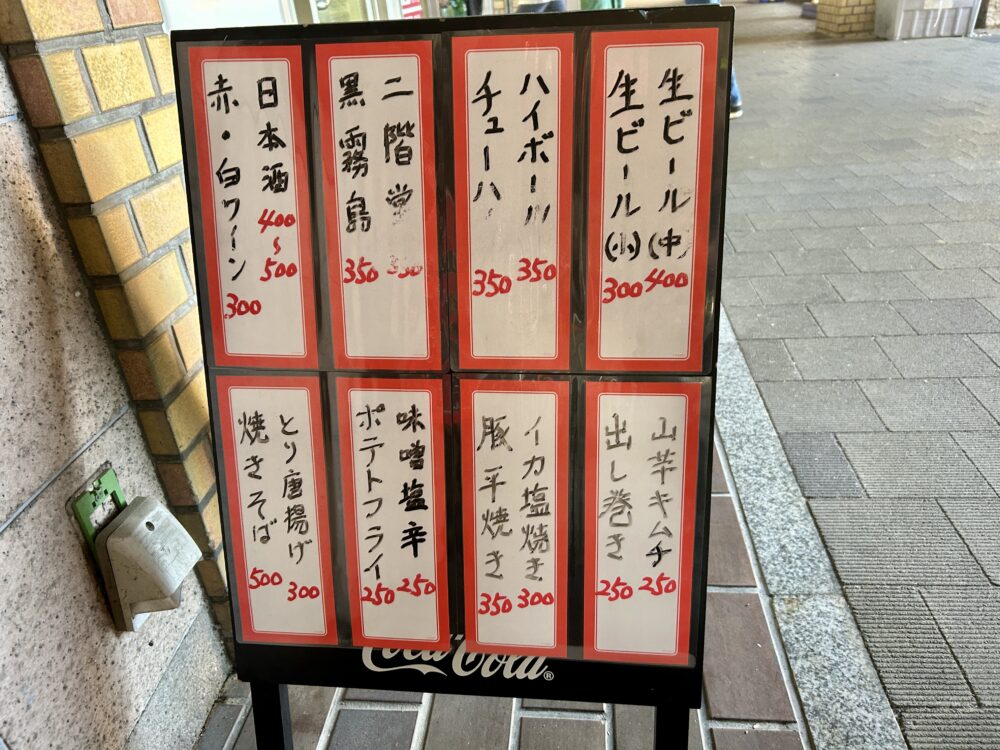 生ビール(中) 400
生ビール(小) 300
ハイボール 350
チューハ 350
二階堂 350
黒霧島 350
日本酒 400~500
赤・白ワイン 300
山芋キムチ 250
出し巻き 250
イカ塩焼き 300
豚平焼き 350
味噌塩辛 250
ポテトフライ 250
とり唐揚げ 300
焼きそば 500
Coca-Cola®